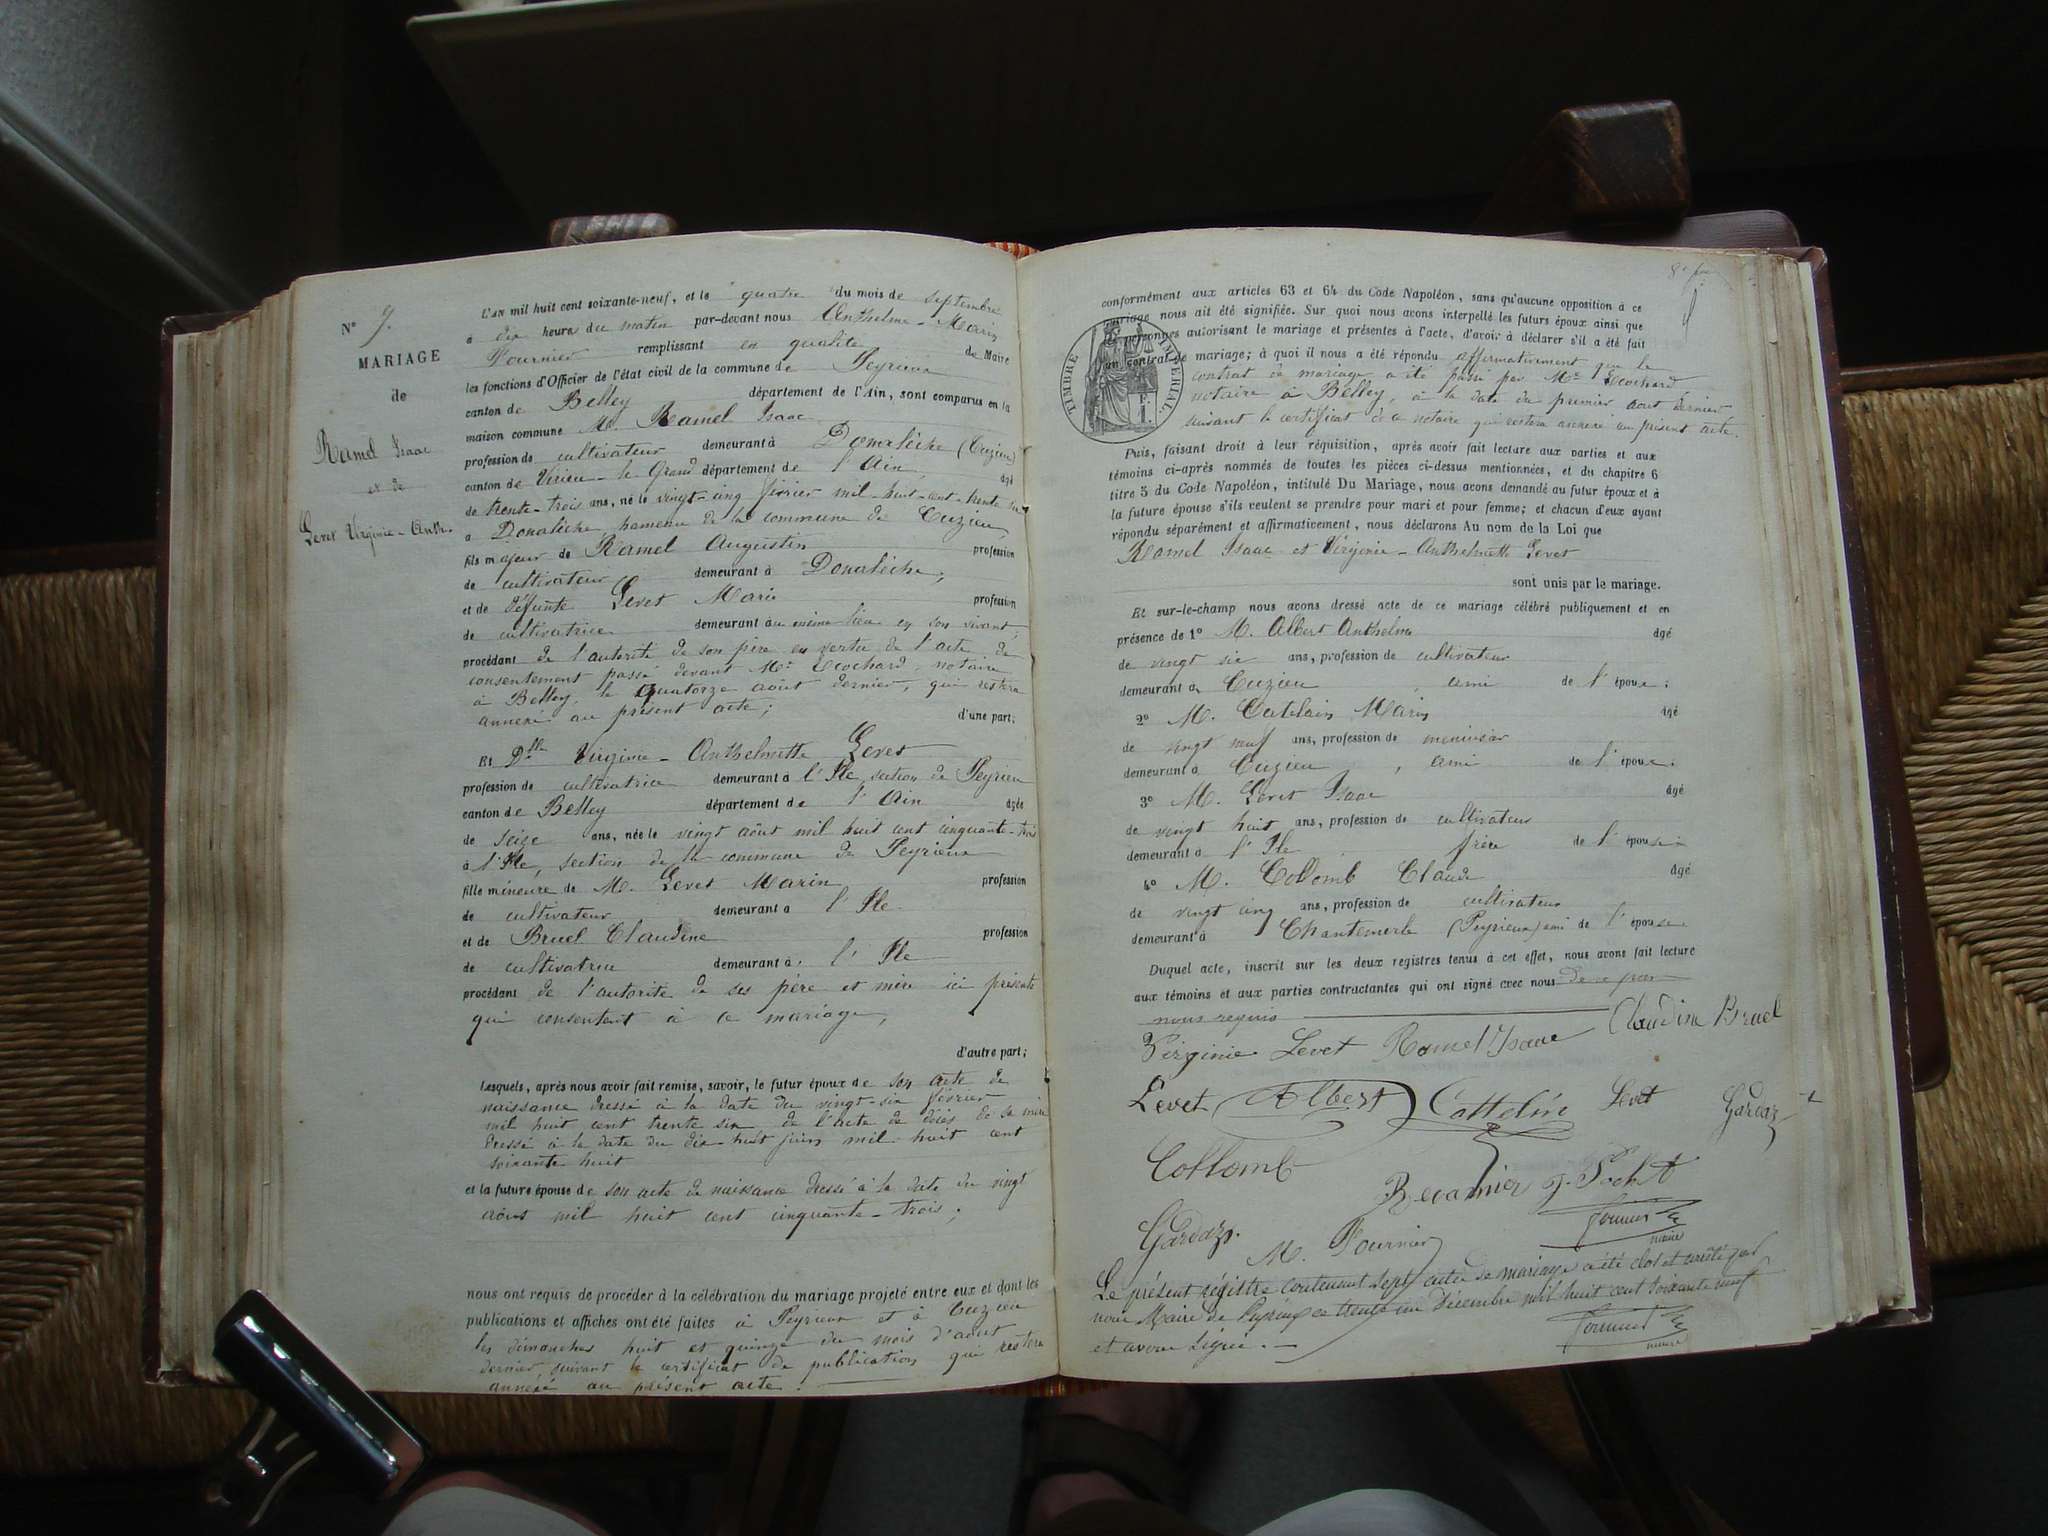 N° 7.
MARIAGE
de
Ramel Isaac
et de
Levet Virginie-Anth.
L'AN mil huit cent soixante-neuf, et le quatre du mois de septembre
à dix heure du matin par-devant nous Anthelme-Marin
Fournier remplissant en qualité de Maire
les fonctions d'Officier de l'état civil de la commune de Peyrieux
canton de Belley département de l'Ain, sont comparus en la
maison commune M. Ramel Isaac
profession de cultivateur demeurant à Donalèche (Cuzieu)
canton de Virieu-le-Grand département de l'Ain âgé
de trente-trois ans, né le vingt-cinq février mil-huit-cent-trente six
à Donalèche hameau de la commune de Cuzieu
fils majeur de Ramel Augustin profession
de cultivateur demeurant à Donalèche;
et de défunte Levet Marie profession
de cultivatrice demeurant au même lieu en son vivant;
procédant de l'autorité de son père en vertu de l'acte de
consentement passé devant Me Ecochard, notaire
à Belley, le quatorze août dernier, qui restera
annexé au présent acte; d'une part;
Et Dlle Virginie-Anthelmette Levet
profession de cultivatrice demeurant à l'Ile, section de Peyrieu
canton de Belley département de l'Ain âgée
de seize ans, née le vingt août mil huit cent cinquante-trois
à l'Ile, section de la commune de Peyrieux
fille mineure de M. Levet Marin profession
de cultivateur demeurant à l'Ile
et de Bruel Claudine profession
de cultivatrice demeurant à l'Ile
procédant de l'autorité de ses père et mère ici présents
qui consentent à ce mariage,
d'autre part;
Lesquels, après nous avoir fait remise, savoir, le futur époux de son acte de
naissance dressé à la date du vingt-six février
mil huit cent trente six de l'acte de décès de sa mère
dressé à la date du dix-huit juin mil huit cent
soixante huit
et la future épouse de son acte de naissance dressé à la date du vingt
août mil huit cent cinquante-trois;
nous ont requis de procéder à la célébration du mariage projeté entre eux et dont les
publications et affiches ont été faites à Peyrieux et à Cuzieu
les dimanches huit et quinze du mois d'août
dernier, suivant le certificat de publication qui restera
annexé au présent acte.
conformément aux articles 63 et 64 du Code Napoléon, sans qu'aucune opposition à ce
mariage nous ait été signifiée. Sur quoi nous avons interpellé les futurs époux ainsi que
les personnes autorisant le mariage et présentes à l'acte, d'avoir à déclarer s'il a été fait
un contrat de mariage; à quoi il nous a été répondu affirmativement que le
contrat de mariage a été passé par Me Ecochard
notaire à Belley, à la date du premier aout dernier
suivant le certificat de ce notaire qui restera annexé au présent acte.
TIMBRE IMPÉRIAL.
Puis, faisant droit à leur réquisition, après avoir fait lecture aux parties et aux
témoins ci-après nommés de toutes les pièces ci-dessus mentionnées, et du chapitre 6
titre 5 du Code Napoléon, intitulé Du Mariage, nous avons demandé au futur époux et à
la future épouse s'ils veulent se prendre pour mari et pour femme; et chacun d'eux ayant
répondu séparément et affirmativement, nous déclarons Au nom de la Loi que
Ramel Isaac et Virginie-Anthelmette Levet
sont unis par le mariage.
Et sur-le-champ nous avons dressé acte de ce mariage célébré publiquement et en
présence de 1° M. Albert Anthelme âgé
de vingt six ans, profession de cultivateur
demeurant à Cuzieu, ami de l'époux;
2° M. Catelain Marin âgé
de vingt neuf ans, profession de menuisier
demeurant à Cuzieu, ami de l'époux;
3° M. Levet Isaac âgé
de vingt huit ans, profession de cultivateur
demeurant à l'Ile frère de l'épouse
4° M. Collomb Claude âgé
de vingt cinq ans, profession de cultivateur
demeurant à Chantemerle (Peyrieux) ami de l'épouse
Duquel acte, inscrit sur les deux registres tenus à cet effet, nous avons fait lecture
aux témoins et aux parties contractantes qui ont signé avec nous de ce par
nous requis
Virginie Levet Ramel Isaac Claudine Bruel
Levet Albert Cattelin Levet Gardaz
Collomb
Récamier J. Pochet
Gardaz. M. Fournier
Fournier
maire
Le présent régistre contenant sept actes de mariage a été clos et arrêté par
nous Maire de Peyrieux ce trente un Décembre mil huit cent soixante neuf
et avons Signé.
Fournier
maire